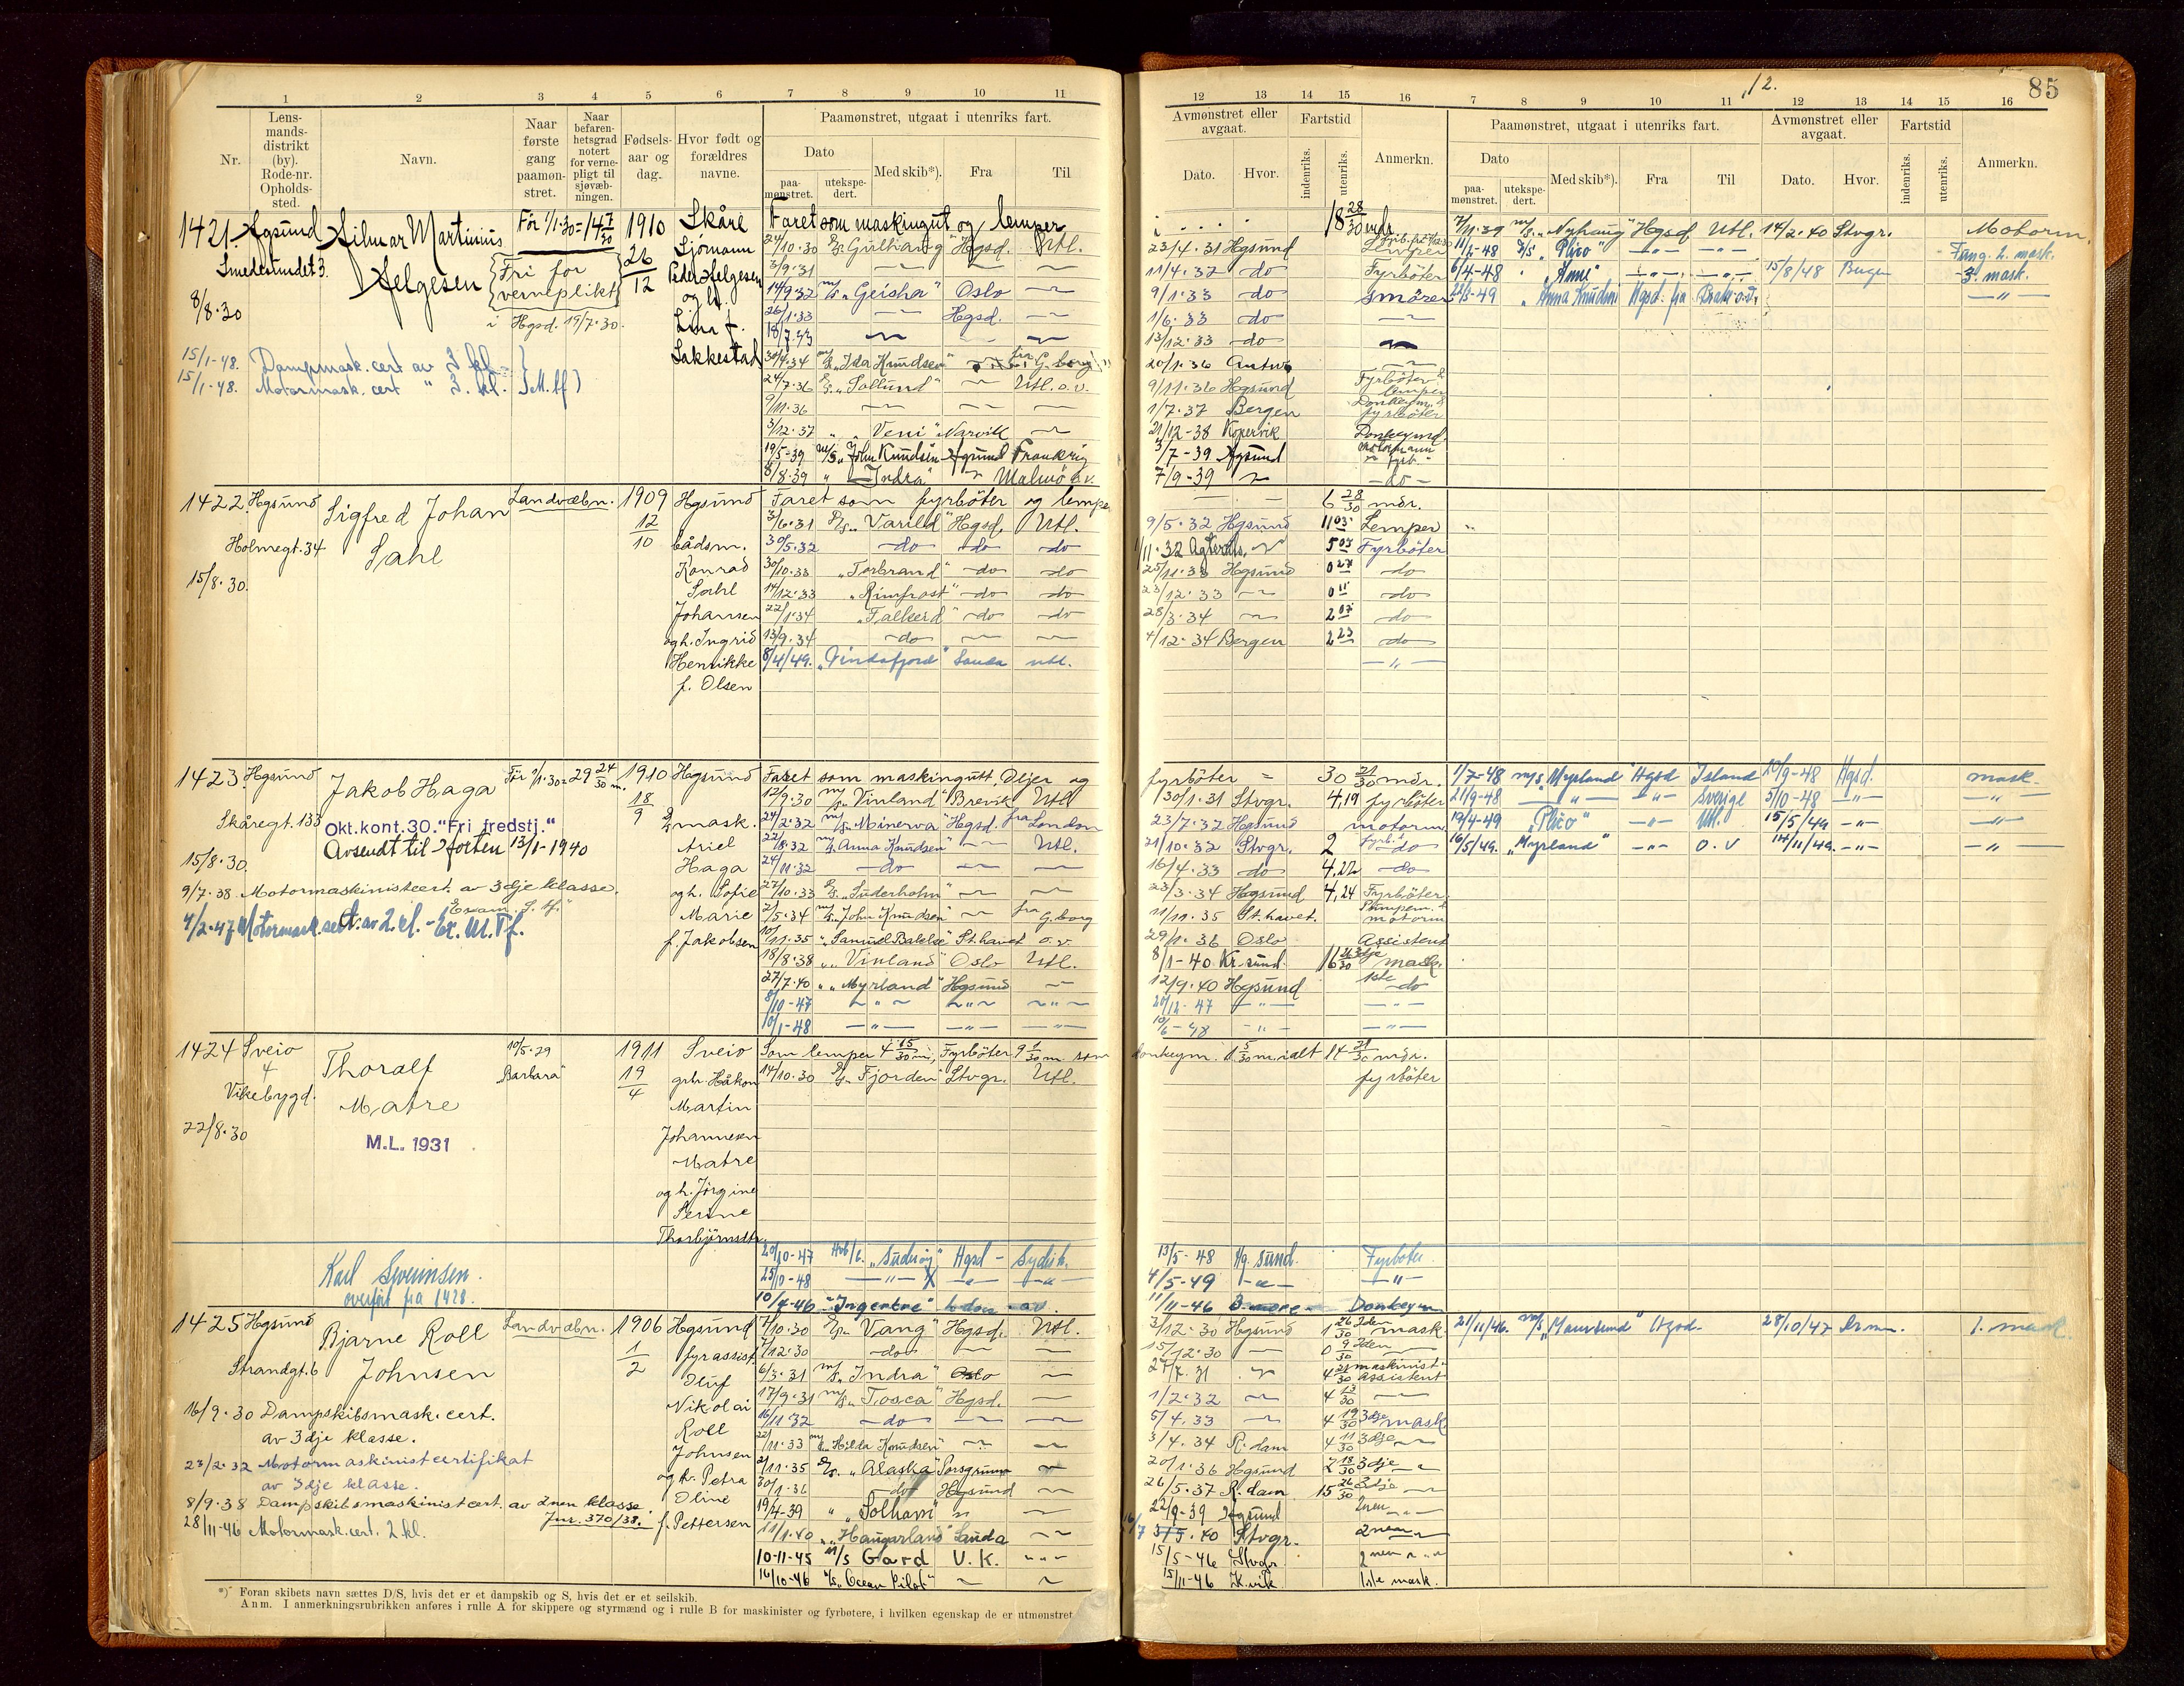 12.
85
1 2 3 4 5 6 7 8 9 10 11
12 13 14 15 16 7 8 9 10 11 12 13 14 15 16
Nr.
Lens-
mands-
distrikt
(by).
Rode-nr.
Opholds-
sted.
Navn.
Naar
første
gang
paamøn-
stret.
Naar
befaren-
hetsgrad
notert
for verne-
pligt til
sjøvæb-
ningen.
Fødsels-
aar og
dag.
Hvor født og
forældres
navne.
Paamønstret, utgaat i utenriks fart.
Dato
paa-
mønstret.
utekspe-
dert.
Med skib*).
Fra
Til
Avmønstret eller
avgaat.
Dato.
Hvor.
Fartstid
indenriks.
utenriks.
Anmerkn.
Paamønstret, utgaat i utenriks fart.
Dato
paa-
mønstret.
utekspe-
dert.
Med skib*).
Fra
Til
Avmønstret eller
avgaat.
Dato.
Hvor.
Fartstid
indenriks.
utenriks.
Anmerkn.
1421. Hgsund
Smedesundet 3.
8/8.30
Hilmar Martinius
Helgesen
Før 1/1.30 = 14 7/30
Fri for
verneplikt
i Hgsd. 19/7.30.
1910
26/12
Skåre
Sjömann
Peder Helgesen
og h.
Lina f.
Sakkestad
15/1-48. Dampmask. cert av 3 kl.
15/1-48. Motormask. cert " 3. kl.
Faret som maskingut og lemper
24/10.30 Hgsd. Utl.
3/9.31
14/9.32 m/s "Geisha" Oslo
26/1.33 Hgsd.
18/7.33
30/4.34 m/s "Ida Knudsen" fra G.borg
24/7.36 D/s "Sollund" Utl. o.v.
9/11.36
3/12.37 " "Veni" Narvik
19/5-39 m/s "John Knudsen" Hgsund Frankrig
8/8.39 " "Indra" Malmö o.v.
18 28/30 mdr.
23/4.31 Hgsund
11/4.32 do Fyrböter
9/1.33 do smörer
1/6.33 do
13/12.33 do
20/1.36 Antw.
9/11.36 Hgsund Fyrböter & lemper
1/7.37 Bergen Donkeym. & fyrböter
21/12-38 Kopervik Donkeymd.
3/7-39 Hgsund motormann
7/9-39 do
7/11.39 m/s "Nyhaug" Hgsd Utl. 14/2.40 Stvgr. Motorm.
11/2-48 D/s "Plico" Fung. 2. mask.
6/4-48 " "Anni" 15/8/48 Bergen 3. mask.
"Anna Knudsen" Hgsd. fra
1422. Hgsund
Holmegt. 34
15/8.30.
Sigfred Johan
Sahl
Landvæbn.
1909
12/10
Hgsund
bådsm.
Konrad
Sahl
Johansen
og h. Ingrid
Henrikke
f. Olsen
Faret som fyrböter og lemper
3/6.31 D/s "Varild" Hgsd. Utl.
30/5.32 do do do
30/10.33 "Torbrand" do do
14/12.33 "Rimfrost" do do
22/1.34 "Falkeid" do do
13/9.34 do
8/4/49. "Vindafjord" Sauda utl.
6 28/30 mdr.
9/5.32 Hgsund 11 03 Lemper
1/11.32 5 03 Fyrböter
25/11.33 Hgsund 0 27 do
23/12.33 0 11 do
28/3.34 2 07 do
4/12.34 Bergen 2 23 do
1423. Hgsund
Skåregt. 133
15/8.30.
Jakob Haga
Okt.kont. 30. "Fri fredstj."
Avsendt til Horten 13/1-1940
Før 1/1.30 = 29 24/30 m.
1910
18/9
Hgsund
mask.
Ariel
Haga
og h. Sofie
Marie
f. Jakobsen
9/7.38. Motormaskinistcert. av 3dje klasse.
4/2-47 Motormask. sert. av 2. kl. - Ex. M. Tf.
Faret som maskingutt, Oljer og
12/9.30 m/s "Vinland" Brevik Utl
24/2.32 m/s "Minerva" Hgsd. fra London
22/8.32 m/s "Anna Knudsen" Utl.
24/11.32 do
27/10.33 D/s "Suderholm"
2/5.34 m/s "John Knudsen" fra G.borg
10/11.35 " "Samuel Bakke" St.havet o.v.
18/8.38 " "Vinland" Oslo Utl.
27/7.40 " "Myrland" Hgsund
8/10-47
10/1-48
fyrböter = 30 21/30 mdr.
30/1.31 Stvgr. 4,19 fyrböter
23/7.32 Hgsund motorm.
21/10.32 Stvgr. 2 do
16/4.33 do 4,22 do
23/3.34 Hgsund 4,24 Fyrböter
11/11.35 St.havet. Pumpem. & motorm
29/1.36 Oslo Assistent
8/1-40 Kr.sund. 16 3dje mask.
12/9.40 Hgsund 1ste do
20/12-47
10/6-48
1/7-48 m/s "Myrland" Hgsd Island 10/9-48 Hgsd. mask.
21/9-48 Sverige 5/10-48
19/4-49 "Plico" Utl. 15/5/49
16/5/49. "Myrland" o.v 14/11/49.
1424 Sveio
4
Vikebygd.
22/8.30
Thoralf
Matre
M.L. 1931
10/5.29
"Barbara"
1911
19/4
Sveio
grbr Håkon
Martin
Johannesen
Matre
og h. Jörgine
Serine
Thorbjörnsdtr.
Som lemper 4 15/30 m, Fyrböter 9 1/30 m. som
14/10.30 D/s "Fjorden" Stvgr. Utl.
donkeym. 1 5/30 m. ialt 14 21/30 mdr.
fyrböter
Karl Severinsen.
overfört fra 1428.
20/10-47 "Suderøy" Hgsd - Sydish.
25/10-48
10/4-46 "Ingertre"
13/5-48 Hg.sund. Fyrböter
4/5-49
11/11-46 B.more Donkeym
1425 Hgsund
Strandgt. 6
Bjarne Roll
Johnsen
Landvæbn.
1906
1/2
Hgsund
fyrassist.
Oluf
Nikolai
Roll
Johnsen
og h. Petra
Oline
f. Pettersen
16/9.30 Dampskibsmask. cert.
av 3dje klasse.
23/2.32 Motormaskinistcertifikat
av 3dje klasse.
8/9.38 Dampskibsmaskinistcert. av 2nen klasse
Jnr. 370/38.
28/11-46 Motormask. cert. 2 kl.
7/10.30 D/s "Vang" Hgsd. Utl.
7/12.30 do
6/3.31 m/s "Indra" Oslo
17/9.31 m/s "Tosca" Hgsd.
16/11.32 do
22/11.33 m/s "Hilda Knudsen"
2/11.35 D/s. "Alaska" Porsgrunn
30/1.36 do Hgsund
19/4-39 " "Solhavn"
11/1.40 " "Haugarland" Sauda
10-11-45 m/s Gard U.K.
16/10-46 "Ocean Pilot"
3/12.30 Hgsund 1 26/30 2den mask.
15/12.30 0 9/30 2den
27/7.31 4 21/30 maskinist assistent
1/2.32 4 13/30
5/4.33 4 19/30 3dje mask
3/4.34 R.dam 4 11/30 3dje
20/1.36 Hgsund 2 18/30 3dje
26/5.37 R.dam 15 26/30 3dje
22/9-39 Hgsund 2nen
Stvgr. 2nen
15/5-46 Stvgr. 2nen
15/11-46 K.vik 1ste mask.
21/11/46. m/s "Maursund" Hgsd. 28/10/47 1. mask
*) Foran skibets navn sættes D/S, hvis det er et dampskib og S, hvis det er et seilskib.
Anm. I anmerkningsrubrikken anføres i rulle A for skippere og styrmænd og i rulle B for maskinister og fyrbøtere, i hvilken egenskap de er utmønstret